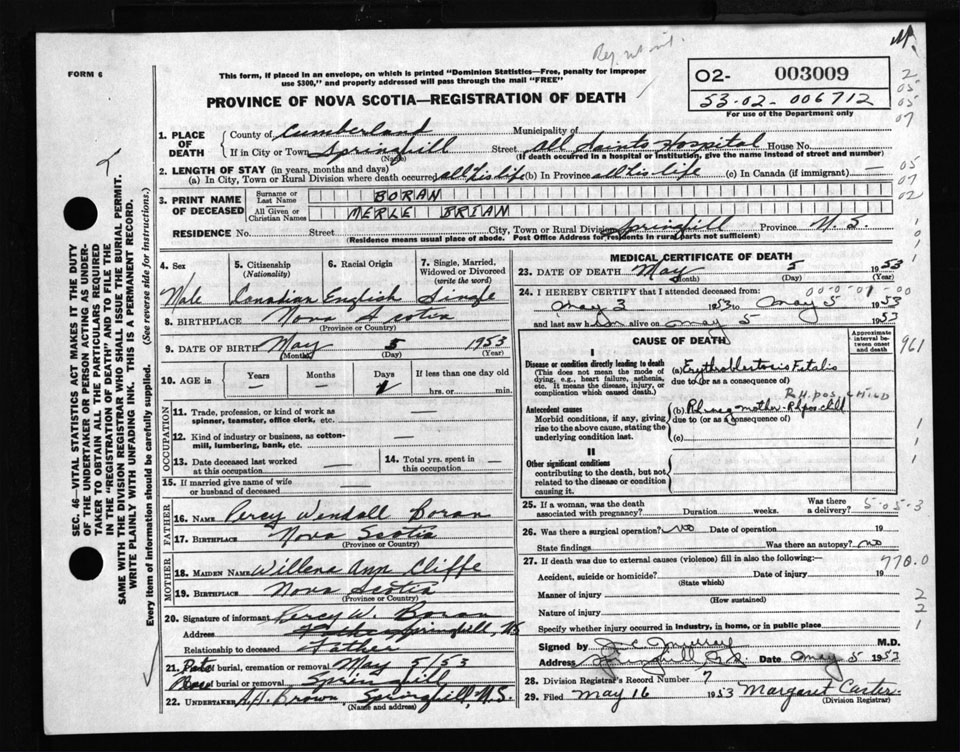 Reg.
M.
FORM 6
This form, if placed in an envelope, on which is printed "Dominion Statistics—Free, penalty for improper
use $300," and properly addressed will pass through the mail "FREE"
PROVINCE OF NOVA SCOTIA—REGISTRATION OF DEATH
02- 003009
53-02-006712
For use of the Department only
1. PLACE OF DEATH
County of Cumberland Municipality of
If in City or Town Springhill Street All Saints Hospital House No.
(Name) (If death occurred in a hospital or institution, give the name instead of street and number)
2. LENGTH OF STAY (in years, months and days)
(a) In City, Town or Rural Division where death occurred all his life (b) In Province all his life (c) In Canada (if immigrant)
3. PRINT NAME OF DECEASED
Surname or Last Name BORAN
All Given or Christian Names MERLE BRIAN
RESIDENCE No. Street City, Town or Rural Division Springhill Province N.S.
(Residence means usual place of abode. Post Office Address for residents in rural parts not sufficient)
4. Sex
Male
5. Citizenship
(Nationality)
Canadian
6. Racial Origin
English
7. Single, Married,
Widowed or Divorced
(write the word)
Single
8. BIRTHPLACE Nova Scotia
(Province or Country)
9. DATE OF BIRTH May 5 1953
(Month) (Day) (Year)
10. AGE in Years Months Days If less than one day old
— — hrs. or min.
OCCUPATION
11. Trade, profession, or kind of work as
spinner, teamster, office clerk, etc. —
12. Kind of industry or business, as cotton-
mill, lumbering, bank, etc. —
13. Date deceased last worked
at this occupation —
14. Total yrs. spent in
this occupation —
15. If married give name of wife
or husband of deceased —
FATHER
16. NAME Percy Wendall Boran
17. BIRTHPLACE Nova Scotia
(Province or Country)
MOTHER
18. MAIDEN NAME Willena Ann Cliffe
19. BIRTHPLACE Nova Scotia
(Province or Country)
20. Signature of informant Percy W. Boran
Address Springhill, NS
Relationship to deceased Father
21. Date burial, cremation or removal May 5/53
Place of burial or removal Springhill
22. UNDERTAKER A.H. Brown Springhill, N.S.
(Name and address)
MEDICAL CERTIFICATE OF DEATH
23. DATE OF DEATH May 5 1953
(Month) (Day) (Year)
24. I HEREBY CERTIFY that I attended deceased from: 00-0-01-00
May 3 1953 to May 5 1953
and last saw him alive on May 5 1953
CAUSE OF DEATH
Approximate
interval be-
tween onset
and death
I
Disease or condition directly leading to death
(This does not mean the mode of
dying, e.g., heart failure, asthenia,
etc. It means the disease, injury, or
complication which caused death.)
(a) Erythroblastosis Fetalis
due to (or as a consequence of)
R.H. pos. CHILD
Antecedent causes
Morbid conditions, if any, giving
rise to the above cause, stating the
underlying condition last.
(b) Rh neg mother - Rh pos child
due to (or as a consequence of)
(c)
II
Other significant conditions
contributing to the death, but not
related to the disease or condition
causing it.
25. If a woman, was the death
associated with pregnancy? Duration weeks. Was there
a delivery? 5-05-3
26. Was there a surgical operation? no Date of operation 19
State findings Was there an autopsy? no
27. If death was due to external causes (violence) fill in also the following:—
Accident, suicide or homicide? Date of injury 19
(State which)
Manner of injury
(How sustained)
Nature of injury
Specify whether injury occurred in industry, in home, or in public place
Signed by J C Murray M.D.
Address Springhill, N.S. Date May 5 1953
28. Division Registrar's Record Number 7
29. Filed May 16 1953 Margaret Carter
(Division Registrar)
SEC. 46—VITAL STATISTICS ACT MAKES IT THE DUTY
OF THE UNDERTAKER OR PERSON ACTING AS UNDER-
TAKER TO OBTAIN ALL THE PARTICULARS REQUIRED
IN THE "REGISTRATION OF DEATH" AND TO FILE THE
SAME WITH THE DIVISION REGISTRAR WHO SHALL ISSUE THE BURIAL PERMIT.
WRITE PLAINLY WITH UNFADING INK. THIS IS A PERMANENT RECORD.
Every item of information should be carefully supplied. (See reverse side for instructions.)
2
05
05
07
05
07
02
1
961
1
1
770.0
2
2
1